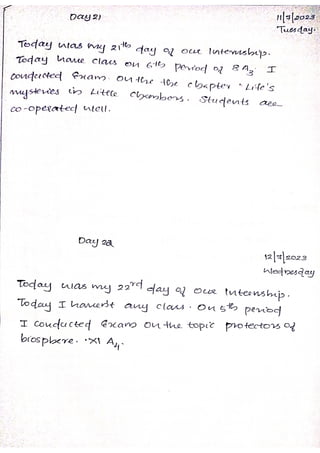 Day 21
11/7/2023
Tuesday.
Today was my 21th day of our Internship.
Today have class on 6th Period of 8 A3. I
conducted Exam on the the chapter 'Life's
mysteries in Little Chambers. Students are
co-operated well.
Day 22
12/7/2023
Wednesday
Today was my 22rd day of our Internship.
Today I havent any class. On 5th period
I conducted Exam on the topic protectors of
biosphere. XI A4.